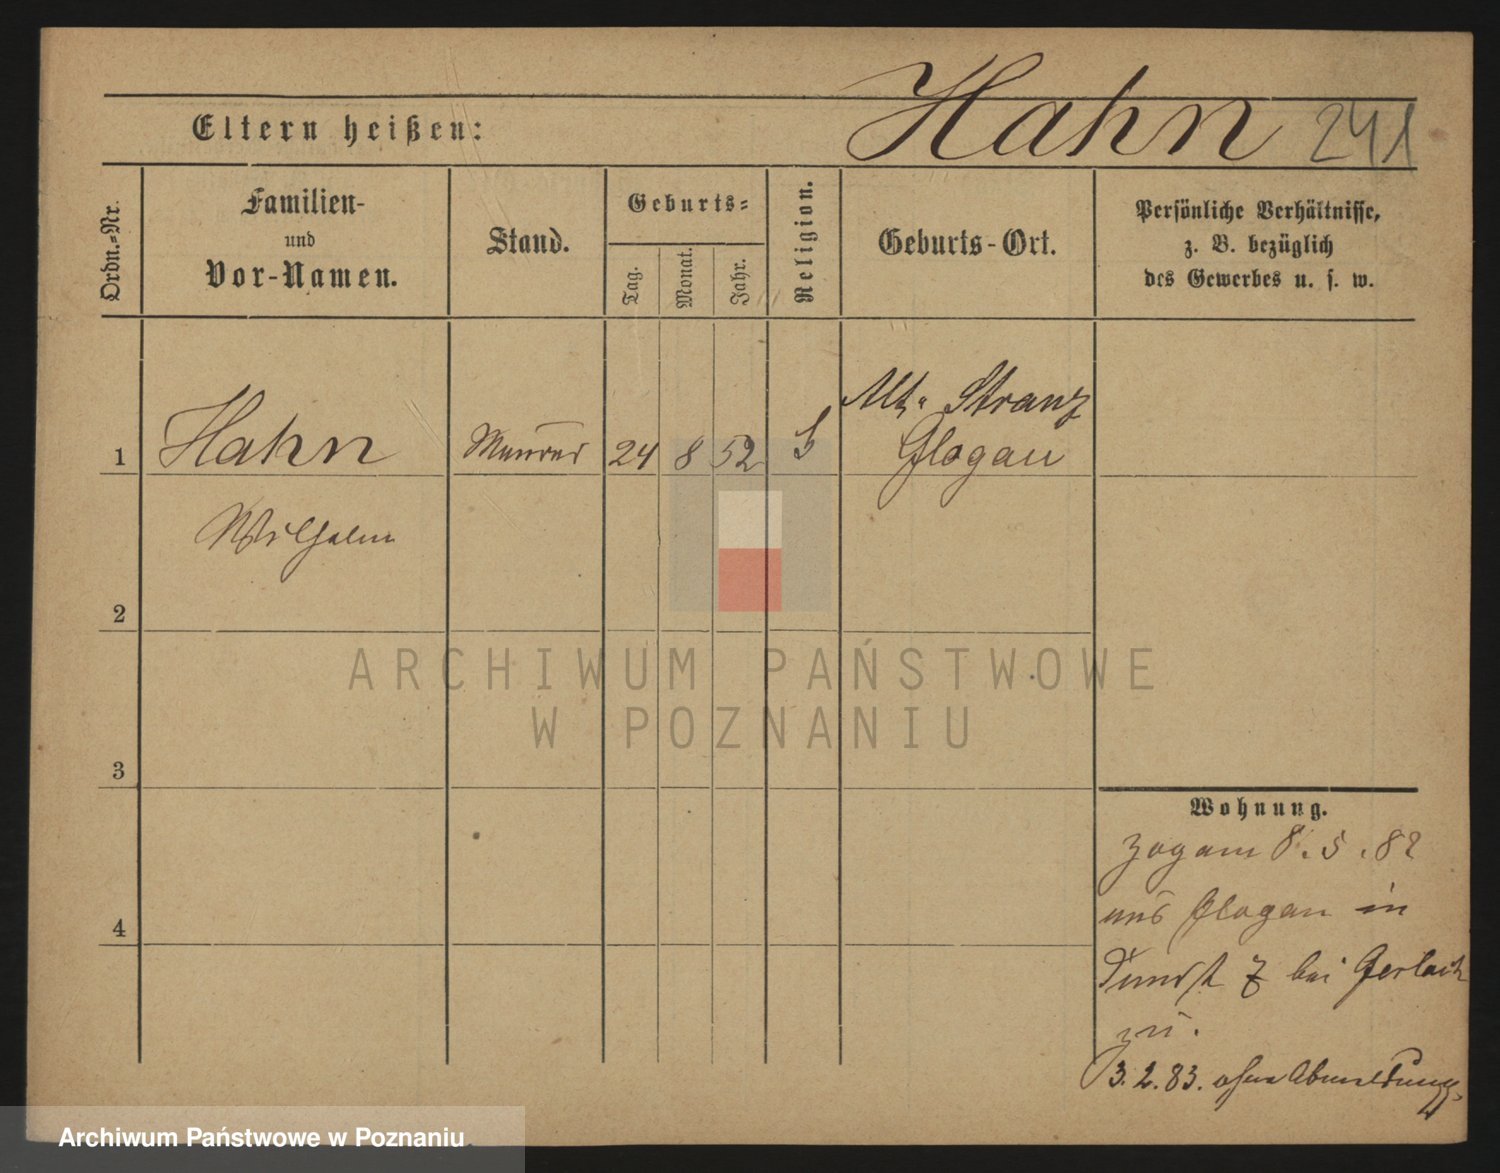 Eltern heißen:
Hahn 241
Ordn.=Nr.
Familien-
und
Vor-Namen.
Stand.
Geburts=
Tag.
Monat.
Jahr.
Religion.
Geburts-Ort.
Persönliche Verhältnisse,
z. B. bezüglich
des Gewerbes u. s. w.
Alt- Stranz
1 Hahn Maurer 24 8 52 Glogau
Wilhelm
2
ARCHIWUM PAŃSTWOWE
W POZNANIU
3
Wohnung.
zogam 8.5.82
aus Glogau in
7 bei Gerlach
zu.
4
3.2.83. ohne Abmeldung
Archiwum Państwowe w Poznaniu